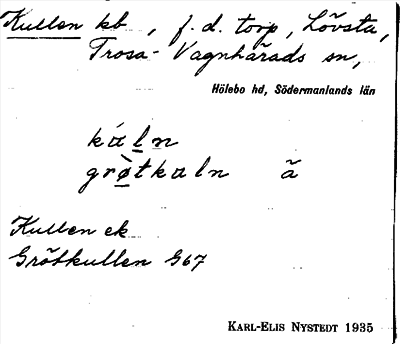 Kullen kb, f. d. torp, Lövsta,
Trosa-Vagnhärads sn,
Hölebo hd, Södermanlands län
kálṉ
grø̀tkaln ã
Kullen ek
Grötkullen G67
KARL-ELIS NYSTEDT 1935